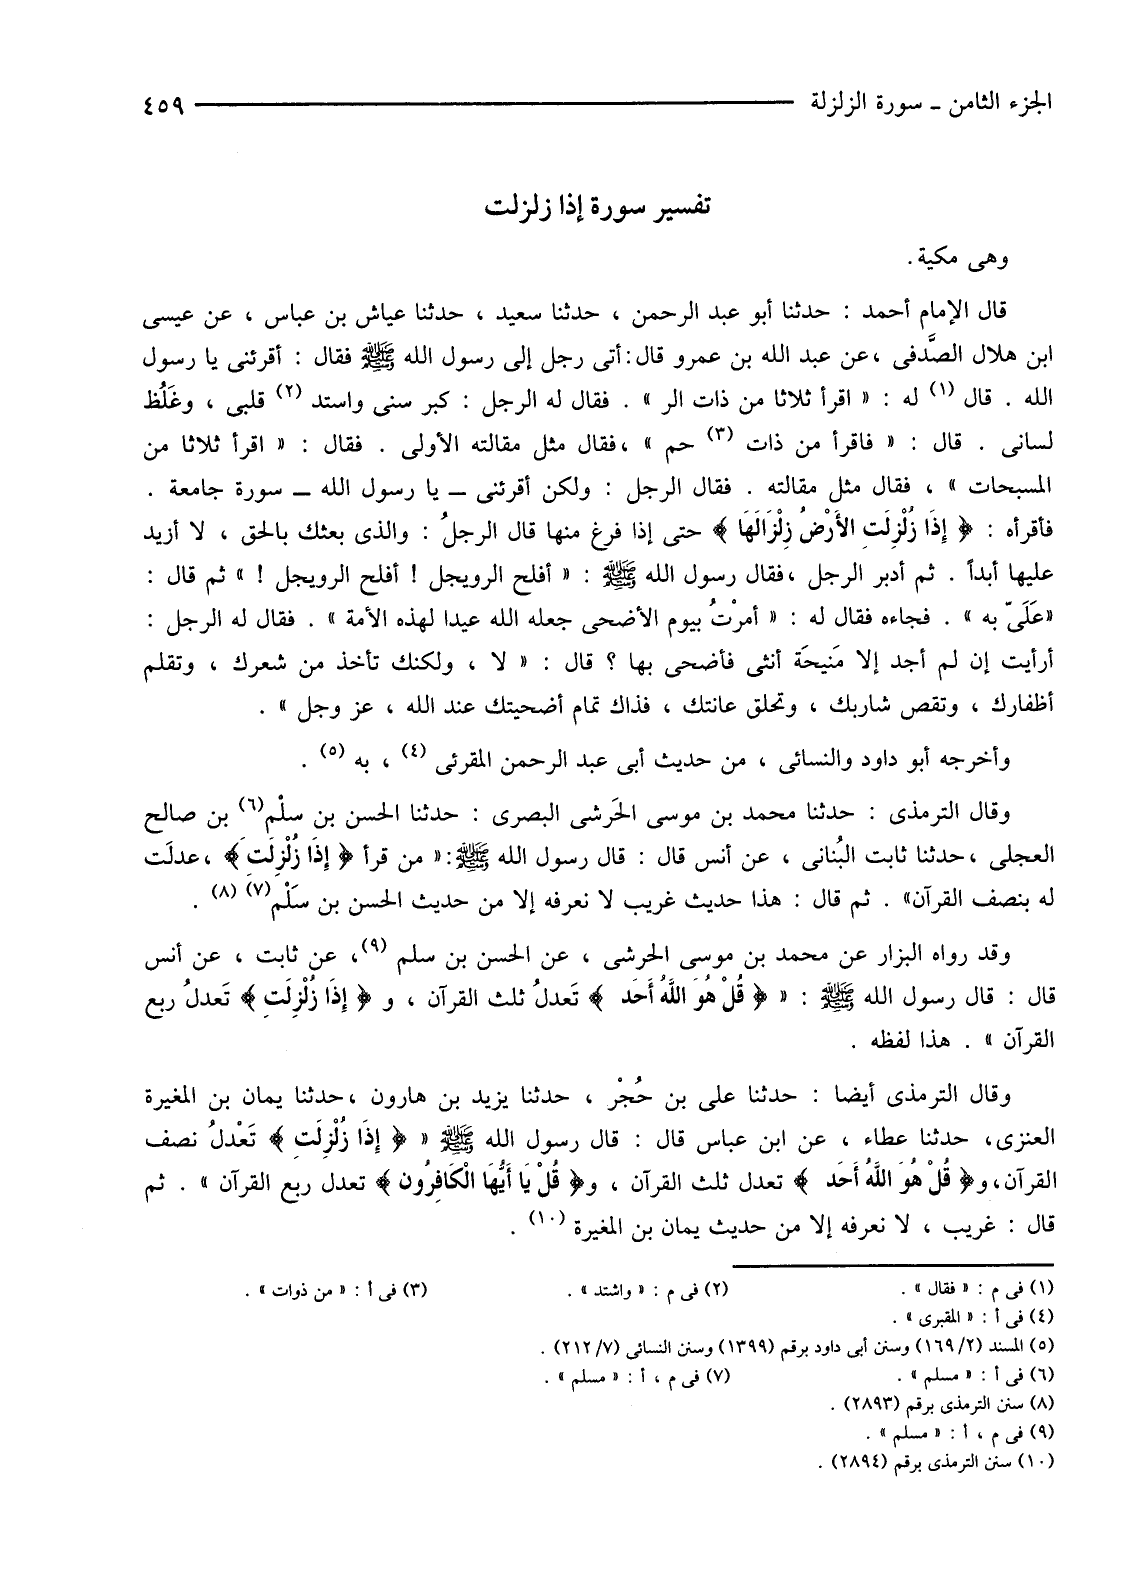 الجزء الثامن ـ سورة الزلزلة ٤٥٩
تفسير سورة إذا زلزلت
وهى مكية .
قال الإمام أحمد : حدثنا أبو عبد الرحمن ، حدثنا سعيد ، حدثنا عياش بن عباس ، عن عيسى
ابن هلال الصَّدفى ،عن عبد الله بن عمرو قال:أتى رجل إلى رسول الله ﷺ فقال : أقرئنى يا رسول
الله . قال (١) له : « اقرأ ثلاثا من ذات الر » . فقال له الرجل : كبر سنى واستد (٢) قلبى ، وغَلُظ
لسانى . قال : « فاقرأ من ذات (٣) حم » ،فقال مثل مقالته الأولى . فقال : « اقرأ ثلاثا من
المسبحات » ، فقال مثل مقالته . فقال الرجل : ولكن أقرئنى ــ يا رسول الله ــ سورة جامعة .
فأقرأه : ﴿ إِذَا زُلْزِلَتِ الأَرْضُ زِلْزَالَهَا ﴾ حتى إذا فرغ منها قال الرجلُ : والذى بعثك بالحق ، لا أزيد
عليها أبداً . ثم أدبر الرجل ،فقال رسول الله ﷺ : « أفلح الرويجل ! أفلح الرويجل ! » ثم قال :
«عَلَىّ به » . فجاءه فقال له : « أمرْتُ بيوم الأضحى جعله الله عيدا لهذه الأمة » . فقال له الرجل :
أرأيت إن لم أجد إلا مَنيحَة أنثى فأضحى بها ؟ قال : « لا ، ولكنك تأخذ من شعرك ، وتقلم
أظفارك ، وتقص شاربك ، وتحلق عانتك ، فذاك تمام أضحيتك عند الله ، عز وجل » .
وأخرجه أبو داود والنسائى ، من حديث أبى عبد الرحمن المقرئى (٤) ، به (٥) .
وقال الترمذى : حدثنا محمد بن موسى الحَرشى البصرى : حدثنا الحسن بن سلْم(٦) بن صالح
العجلى ،حدثنا ثابت البُنانى ، عن أنس قال : قال رسول الله ﷺ:« من قرأ ﴿ إِذَا زُلْزِلَتِ ﴾ ،عدلَت
له بنصف القرآن» . ثم قال : هذا حديث غريب لا نعرفه إلا من حديث الحسن بن سَلْم(٧) (٨) .
وقد رواه البزار عن محمد بن موسى الحرشى ، عن الحسن بن سلم (٩)، عن ثابت ، عن أنس
قال : قال رسول الله ﷺ : « ﴿ قُلْ هُوَ اللَّهُ أَحَد ﴾ تَعدلُ ثلث القرآن ، و ﴿ إِذَا زُلْزِلَت ﴾ تَعدلُ ربع
القرآن » . هذا لفظه .
وقال الترمذى أيضا : حدثنا على بن حُجْر ، حدثنا يزيد بن هارون ،حدثنا يمان بن المغيرة
العنزى، حدثنا عطاء ، عن ابن عباس قال : قال رسول الله ﷺ « ﴿ إِذَا زُلْزِلَت ﴾ تَعْدلُ نصف
القرآن،و﴿ قُلْ هُوَ اللَّهُ أَحَد ﴾ تعدل ثلث القرآن ، و﴿ قُلْ يَا أَيُّهَا الْكَافِرُون ﴾ تعدل ربع القرآن » . ثم
قال : غريب ، لا نعرفه إلا من حديث يمان بن المغيرة (١٠) .
(١) فى م : « فقال » . (٢) فى م : « واشتد » . (٣) فى أ : « من ذوات » .
(٤) فى أ : « المقبرى » .
(٥) المسند (٢/ ١٦٩) وسنن أبى داود برقم (١٣٩٩) وسنن النسائى (٧/ ٢١٢) .
(٦) فى أ : « مسلم » . (٧) فى م ، أ : « مسلم » .
(٨) سنن الترمذى برقم (٢٨٩٣) .
(٩) فى م ، أ : « مسلم » .
(١٠) سنن الترمذى برقم (٢٨٩٤) .